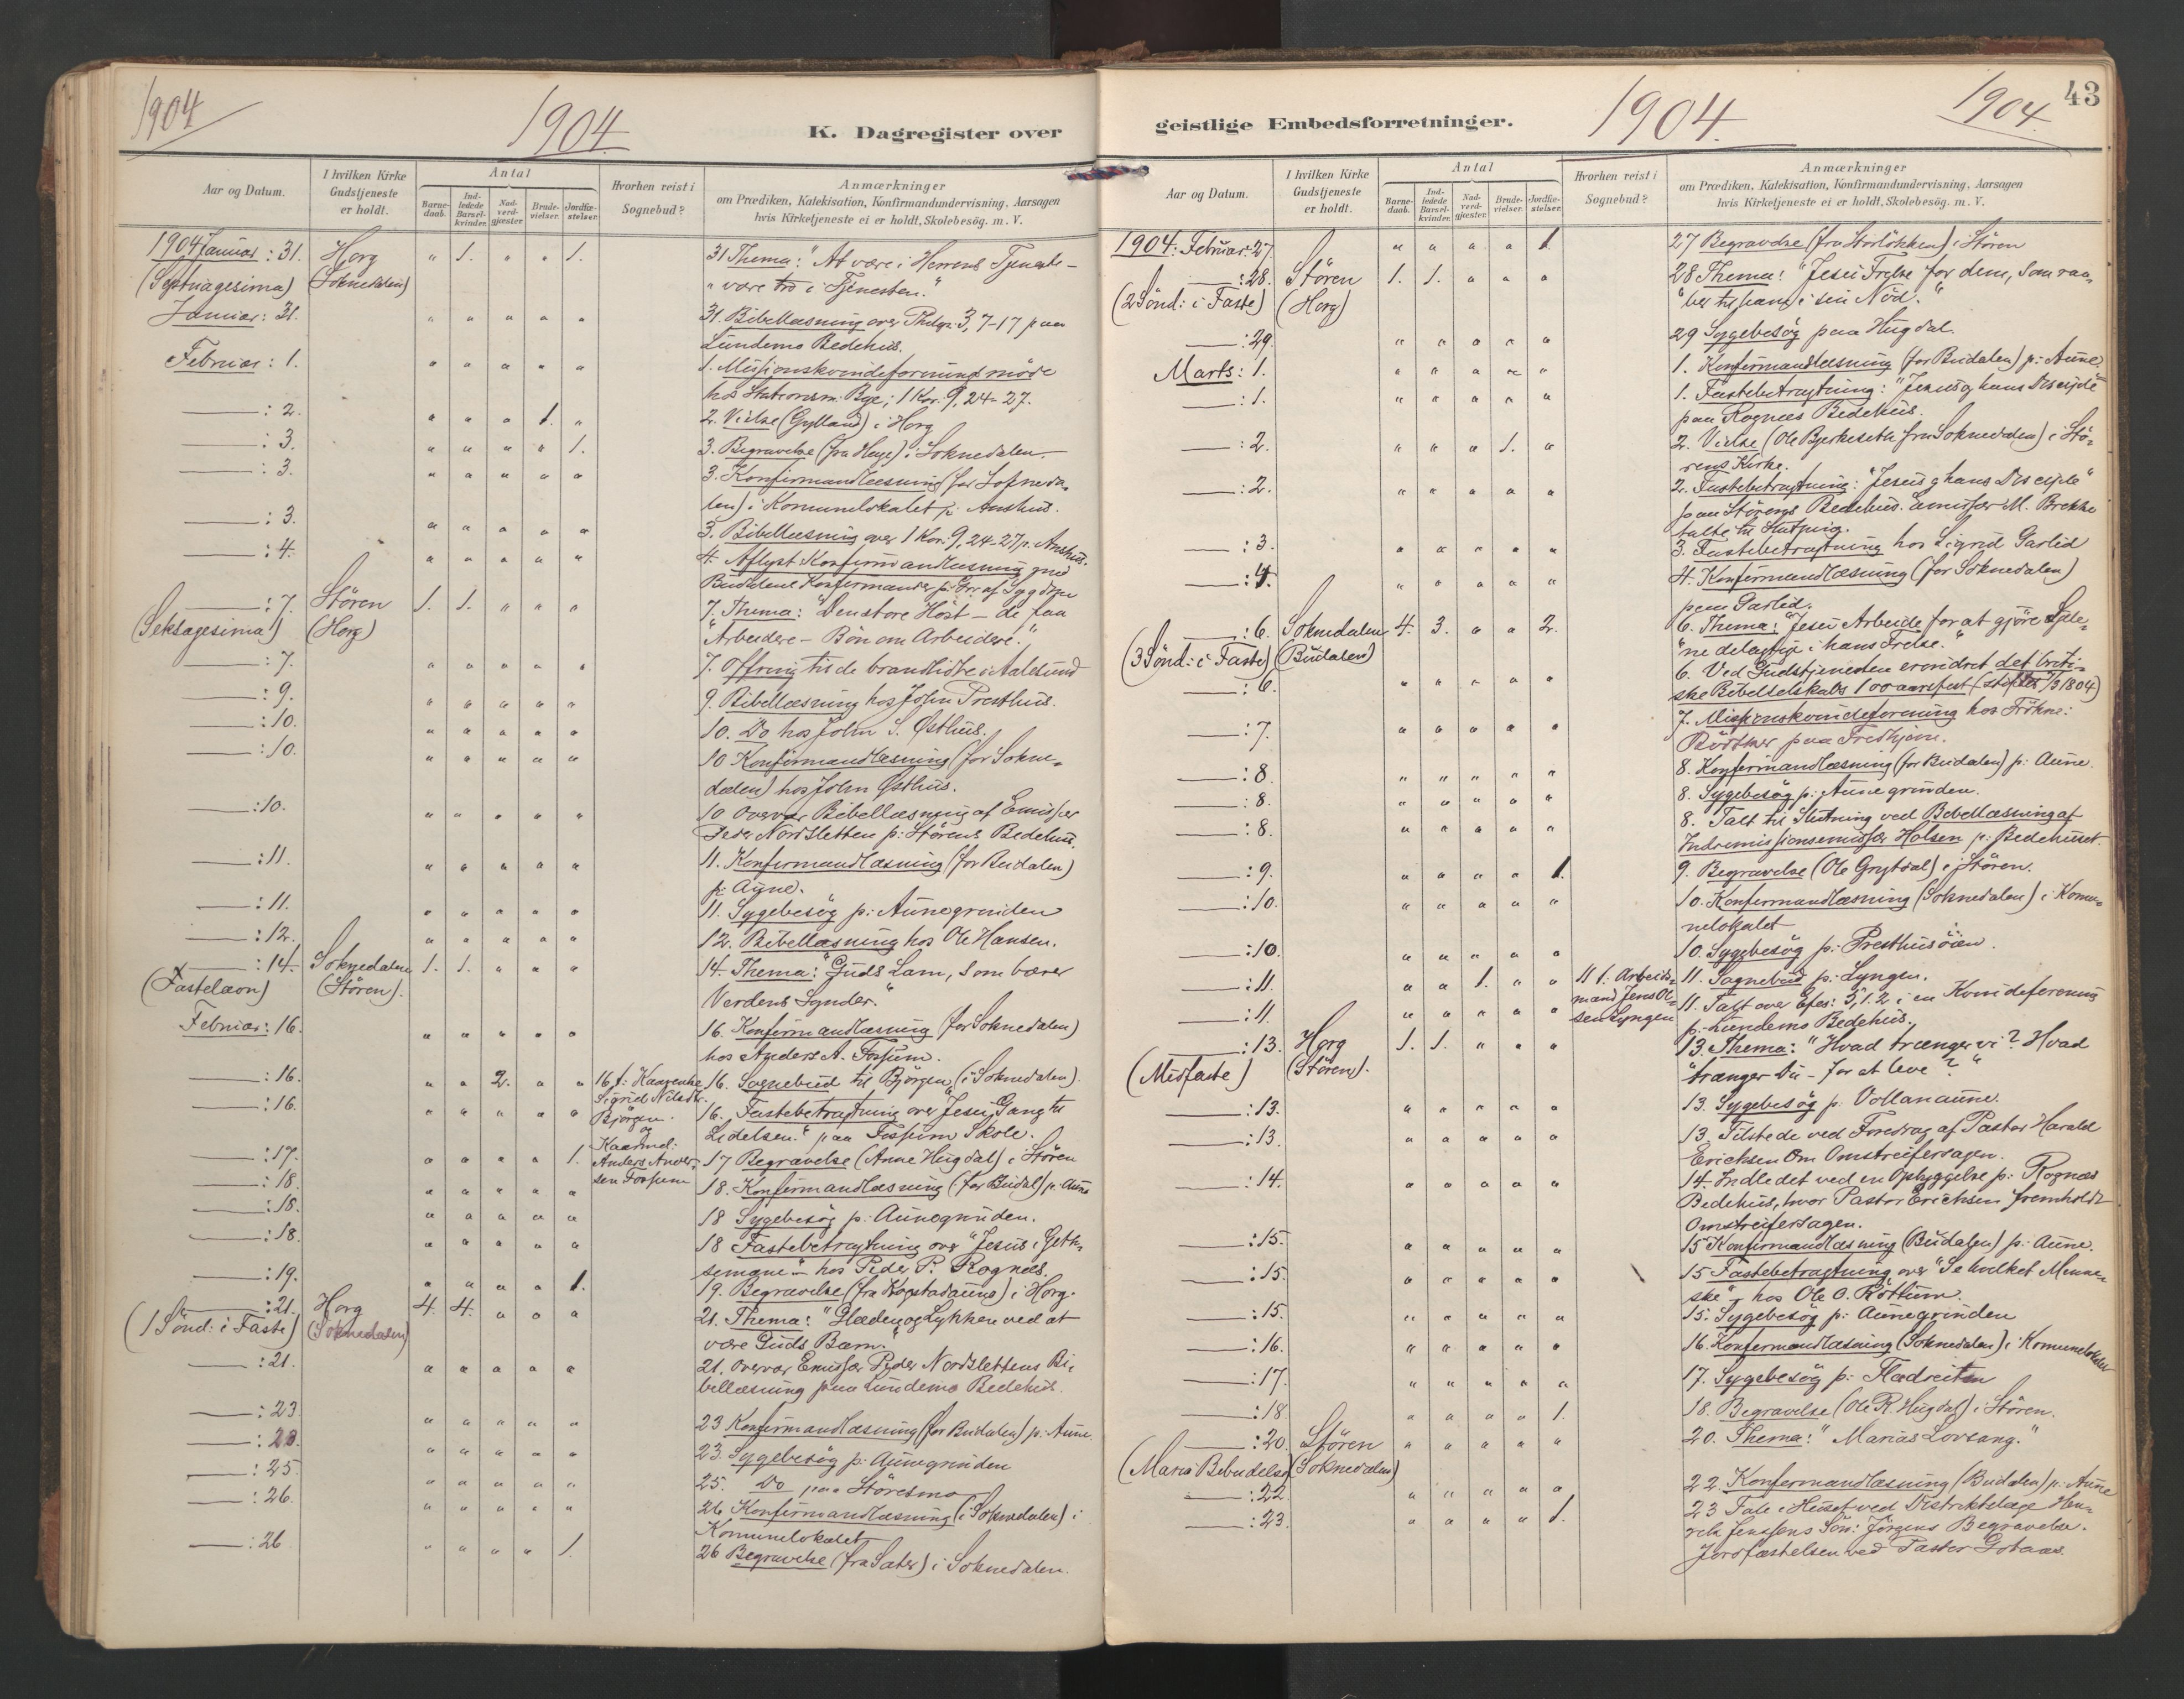 1904
1904
K. Dagregister over
Aar og Datum.
I hvilken Kirke Gudstjeneste er holdt.
Antal
Barnedaab.
Indledede Barselkvinder.
Nadverdgjæster.
Brudevielser.
Jordfæstelser.
Hvorhen reist i Sognebud?
Anmærkninger
om Prædiken, Katekisation, Konfirmandundervisning, Aarsagen
hvis Kirketjeneste ei er holdt, Skolebesøg m. V.
1904 Januar: 31. Horg " 1. " " 1. 31 Thema: "At være i Herrens Tjeneste -
(Septuagesima) (Soknedalen) " være tro i Tjenesten."
Januar: 31. " " " " " 31. Bibellæsning over 3, 7-17 paa
Lundemo Bedehus.
Februar: 1. " " " " " 1. Missionskvindeforening møde
hos Stationsm. Bye; 1 Kor. 9, 24-27.
—: 2. " " " 1. " 2. Vielse (Gylland) i Horg
—: 3. " " " " 1. 3. Begravelse (fra Hage) i Soknedalen.
—: 3. " " " " " 3. Konfirmandlæsning (for Sokneda-
len) i Komunelokalet p: Aashus.
—: 3. " " " " " 3. Bibellæsning over 1 Kor. 9, 24-27 p. Aashus.
—: 4. " " " " " 4. Aflyst Konfirmandlæsning med
Budalens Konfirmander p: Gr. af Sygdom
—: 7. Støren 1. 1. " " " 7. Thema: "Den store Høst - de faa
(Seksagesima) (Horg) "Arbeidere - Bøn om Arbeidere."
—: 7. " " " " " 7. Offring til de brandlidte i Aalesund
—: 9. " " " " " 9. Bibellæsning hos John Presthus.
—: 10. " " " " " 10. Do hos John S. Østhus.
—: 10. " " " " " 10 Konfirmandlæsning (for Sokne-
dalen) hos John Østhus.
—: 10. " " " " " 10 Overvar Bibellæsning af Emissær
Peder Nordsletten p: Størens Bedehus.
—: 11. " " " " " 11. Konfirmandlæsning (for Budalen)
p: Aune.
—: 11. " " " " " 11. Sygebesøg p: Aunegrinden
—: 12. " " " " " 12. Bibellæsning hos Ole Hansen.
—: 14. Soknedalen 1. 1. " " " 14. Thema: "Guds Lam, som bærer
(Fastelavn) (Støren). Verdens Synder."
Februar: 16. " " " " " 16. Konfirmandlæsning (for Soknedalen)
hos Anders A. Fossum.
—: 16. " " 2. " " 16. Sognebud til Bjørgen (i Soknedalen).
Sigrid Nilsdtr.
Bjørgen
og
Kaarmd.
Anders Ander-
sen Fossum
—: 16. " " " " " 16. Fastebetragtning over "Jesu Gang til
Lidelsen." paa Fossum Skole.
—: 17. " " " " 1. 17 Begravelse (Anne Hugdal) i Støren
—: 18. " " " " " 18. Konfirmandlæsning (for Budal) p. Aune
—: 18. " " " " " 18 Sygebesøg p: Aunegrinden.
—: 18. " " " " " 18 Fastebetragtning over "Jesus i Geth-
semane" - hos Peder P. Rognes.
—: 19. " " " " 1. 19. Begravelse (fra Kregstadaune) i Horg.
—: 21. Horg 4. 4. " " " 21. Thema: "Glæden og Lykken ved at
(1 Sønd: i Faste) (Soknedalen) være Guds Barn."
—: 21. " " " " " 21. Overvar Emissær Peder Nordslettens Bi-
bellæsning paa Lundemo Bedehus.
—: 23. " " " " " 23 Konfirmandlæsning (for Budalen) p: Aune.
—: 23. " " " " " 23. Sygebesøg p: Aunegrinden
—: 25. " " " " " 25. Do paa Størensmo
—: 26. " " " " " 26 Konfirmandlæsning (i Soknedalen) i
Komunelokalet
—: 26 " " " " 1. 26 Begravelse (fra Sater) i Soknedalen.
geistlige Embedsforretninger.
1904.
1904.
43
Aar og Datum.
I hvilken Kirke Gudstjeneste er holdt.
Antal
Barnedaab.
Indledede Barselkvinder.
Nadverdgjæster.
Brudevielser.
Jordfæstelser.
Hvorhen reist i Sognebud?
Anmærkninger
om Prædiken, Katekisation, Konfirmandundervisning, Aarsagen
hvis Kirketjeneste ei er holdt, Skolebesøg m. V.
1904: Februar: 27 " " " " 1. 27 Begravelse (fra Storløkken) i Støren
—: 28. Støren 1. 1. " " " 28 Thema: "Jesu Frelse for dem, som raa-
(2 Sønd: i Faste) (Horg) "ber til ham i sin Nød."
—: 29. " " " " " 29 Sygebesøg paa Hugdal.
Marts: 1. " " " " " 1. Konfirmandlæsning (for Budalen) p: Aune.
—: 1. " " " " " 1. Fastebetragtning: "Jesus og hans Disciple"
paa Rognes Bedehus.
—: 2. " " " 1. " 2. Vielse (Ole Bjerkeseth fra Soknedalen) i Stø-
rens Kirke.
—: 2. " " " " " 2. Fastebetragtning: "Jesus og hans Disciple"
paa Størens Bedehus. Emissær M. Brekke
talte til Slutning.
—: 3. " " " " " 3. Fastebetragtning hos Sigrid Garlid
—: 4. " " " " " 4. Konfirmandlæsning (for Soknedalen)
paa Garlid.
—: 6. Soknedalen 4. 3. " " 2. 6. Thema: "Jesu Arbeide for at gjøre Sjæle-
(3 Sønd: i Faste) (Budalen) "ne delagtige i hans Frelse."
—: 6. " " " " " 6. Ved Gudstjenesten erindret det briti-
ske Bibelselskabs 100 aarsfest (stiftet 7/3 1804)
—: 7. " " " " " 7. Missionskvindeforening hos Frøkne:
Bødtker paa Fredhjem.
—: 8. " " " " " 8. Konfirmandlæsning (for Budalen) p: Aune.
—: 8. " " " " " 8. Sygebesøg p: Aunegrinden.
—: 8. " " " " " 8. Talt til Slutning ved Bibellæsning af
Indremissionsemissær Holsen p: Bedehuset.
—: 9. " " " " 1. 9. Begravelse (Ole Grytdal) i Støren.
—: 10. " " " " " 10. Konfirmandlæsning (Soknedalen) i Komu-
nelokalet
—: 10. " " " " " 10. Sygebesøg p: Presthusøien.
—: 11. " " 1. " " 11 f. Arbeids- 11. Sognebud p: Lyngen.
mand Jens Ol-
sen Lyngen
—: 11. " " " " " 11. Talt over Efes: 5, 1.2 i en Kvindeforening
p: Lundemo Bedehus.
—: 13. Horg 1. 1. " " " 13. Thema: "Hvad trænger vi? Hvad
(Midfaste) (Støren). "trænger Du - for at leve?"
—: 13. " " " " " 13. Sygebesøg p: Vollanaune.
—: 13. " " " " " 13. Tilstede ved Foredrag af Pastor Harald
Erichsen Om Omstreifersagen.
—: 14. " " " " " 14. Indledet ved en Opbyggelse p: Rognes
Bedehus, hvor Pastor Erichsen fremholdt
Omstreifersagen.
—: 15. " " " " " 15 Konfirmandlæsning (Budalen) p: Aune.
—: 15. " " " " " 15 Fastebetragtning over "Se hvilket Menne-
ske" - hos Ole O. Røttum.
—: 15. " " " " " 15: Sygebesøg p: Aunegrinden
—: 16. " " " " " 16. Konfirmandlæsning (Soknedalen) i Komunelokalet
—: 17. " " " " " 17. Sygebesøg p:
—: 18. " " " " 1. 18. Begravelse (Ole R. Hugdal) i Støren.
—: 20. Støren " " " " " 20. Thema: "Marias Lovsang."
(Maria Bebudelse) (Soknedalen)
—: 22. " " " " " 22. Konfirmandlæsning (Budalen) p: Aune
—: 23. " " " " 1. 23 Tale i Huset ved Distriktslæge Hen-
rik Jenssens Søn: Jørgens Begravelse.
Jordfæstelsen ved Pastor Gotaas.